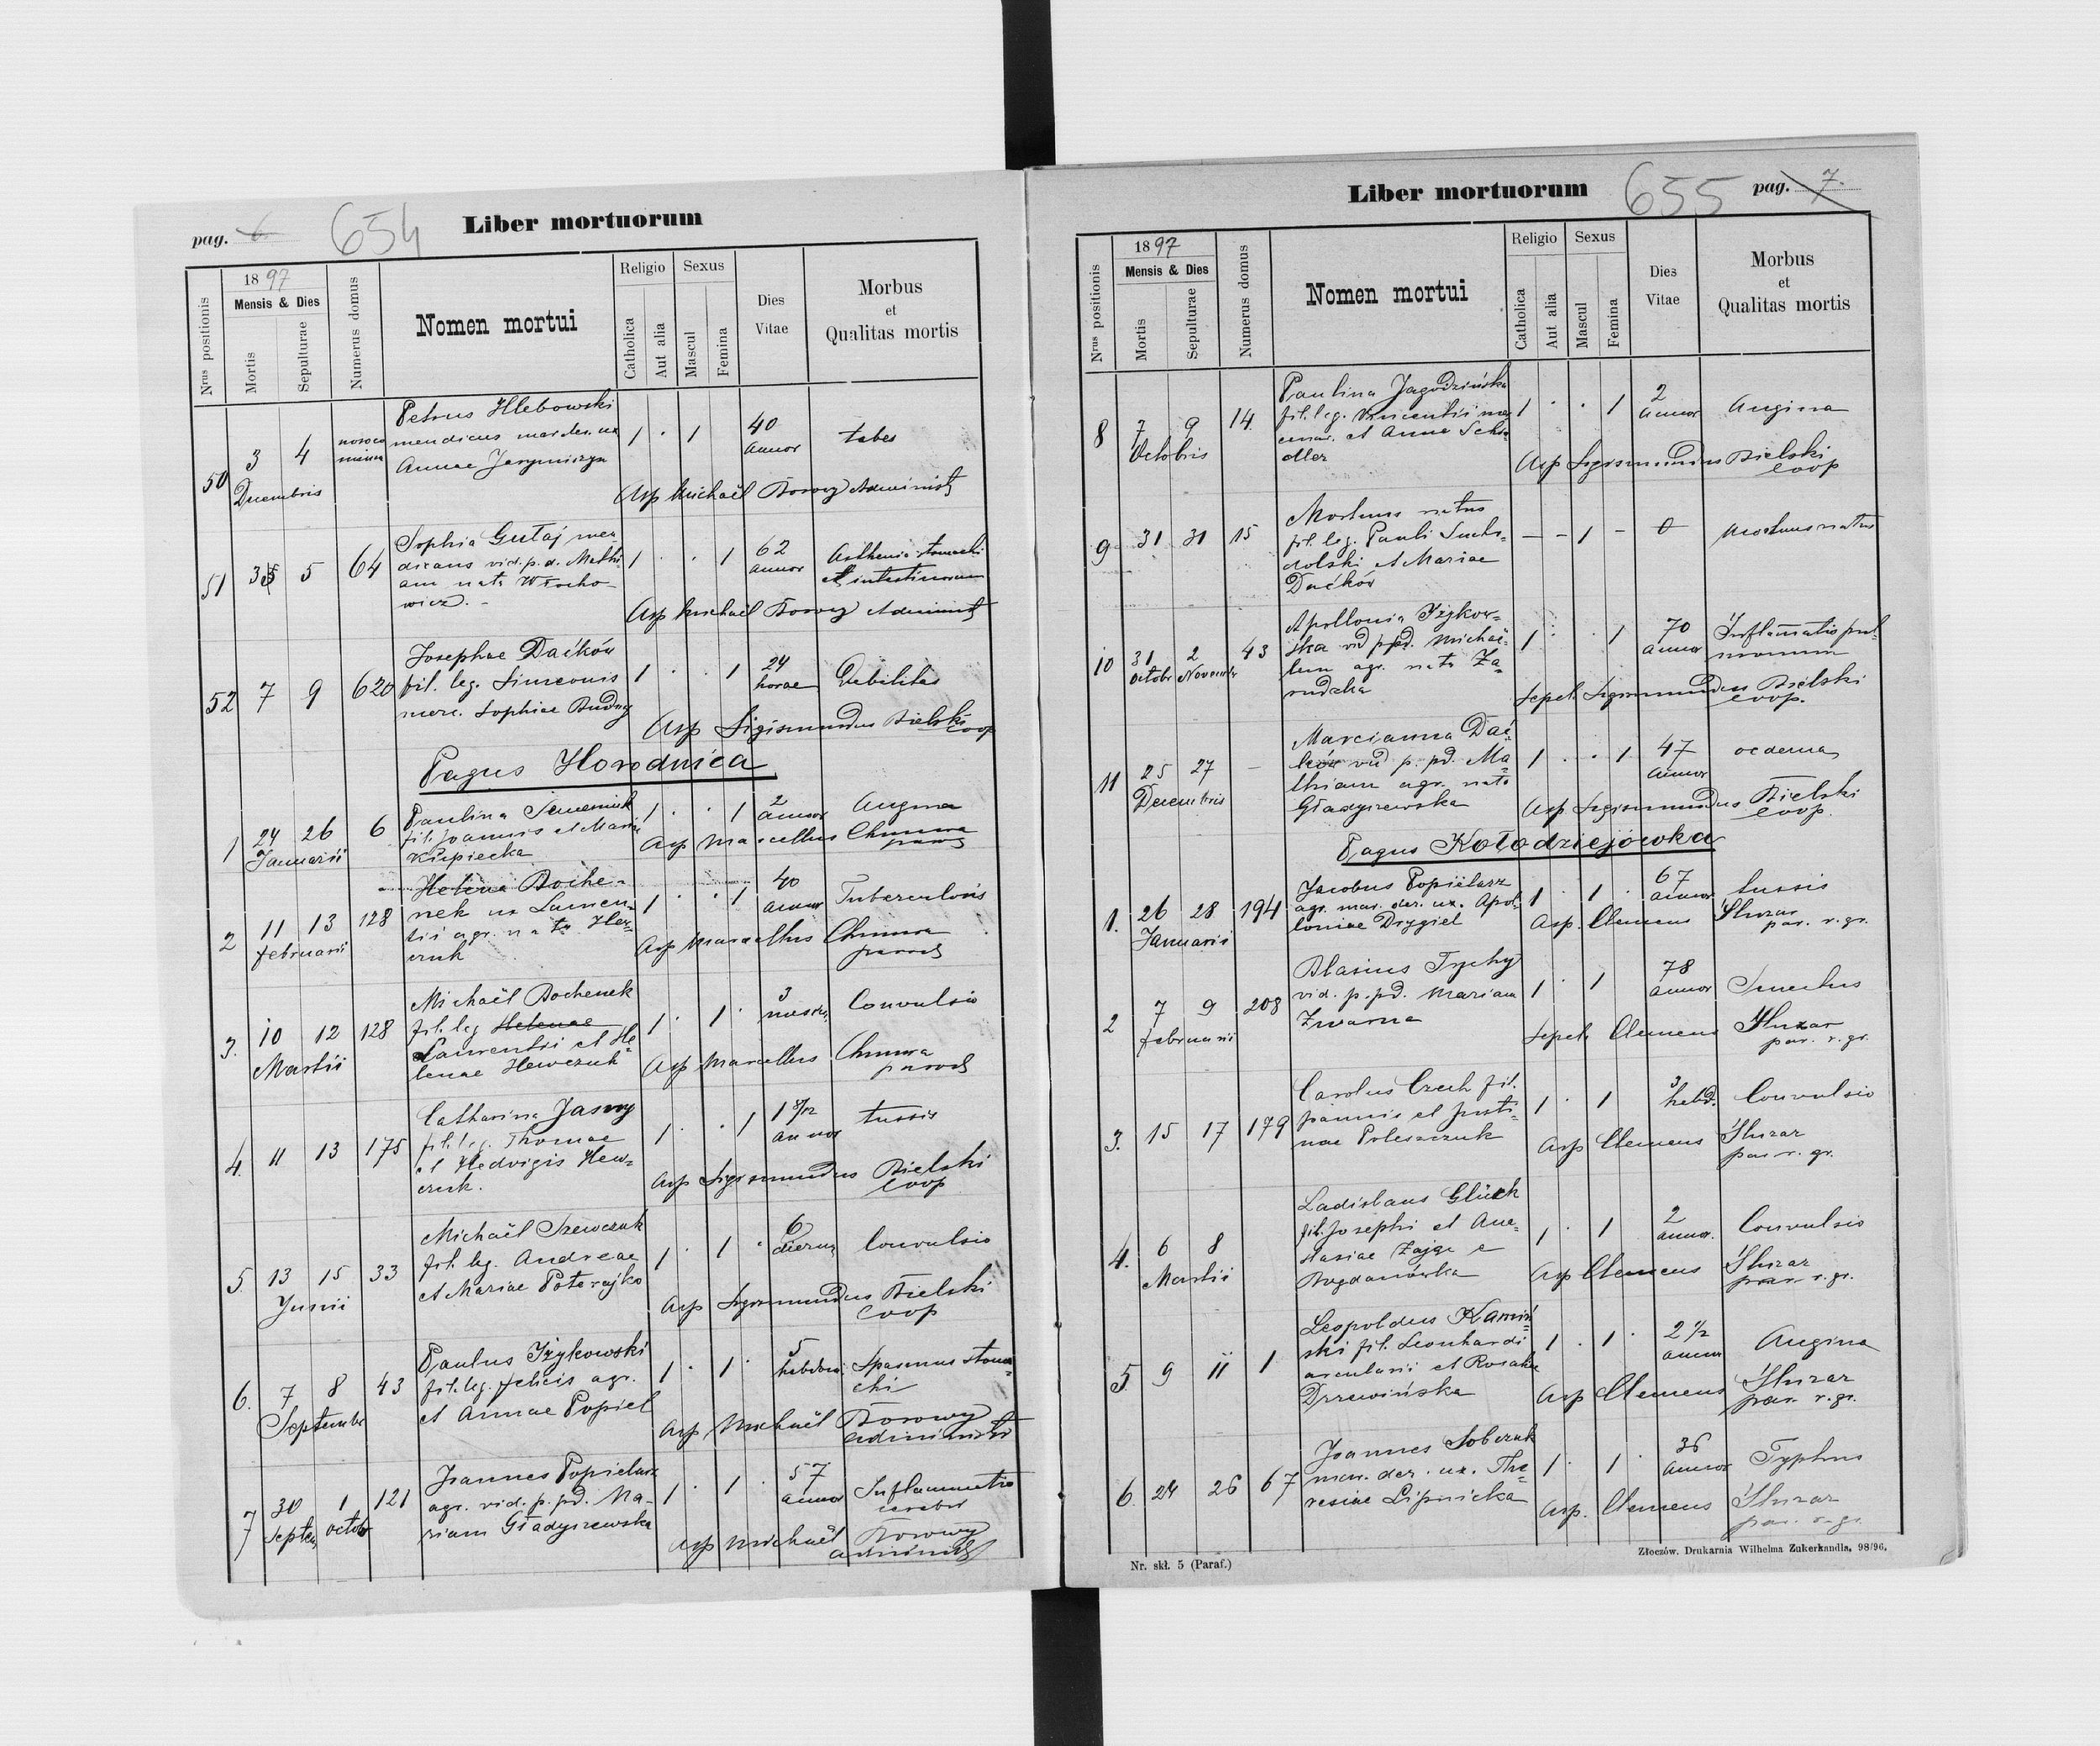 pag. 6. 654 Liber mortuorum
Nrus positionis
1897
Mensis & Dies
Mortis
Sepulturae
Numerus domus
Nomen mortui
Religio
Catholica
Aut alia
Sexus
Mascul
Femina
Dies
Vitae
Morbus
et
Qualitas mortis
Petrus Hlebowski
50 3 4 mendicus mar. der. ux 1 . 1 40 tabes
Decembris Annae annor
Asp Michaël Borowy Administ
Sophia Gutaj men
51 5 64 dicans vid. p. d. Mathi 1 . . 1 62 Asthenia stomachi
am nata Wrocho annor et intestinorum
wicz. -
Asp Michaël Borowy Administ
Josephae Daćków
52 7 9 620 fil. leg. Simeonis 1 . . 1 24 Debilitas
merc. Sophiae Budny horae
Asp Sigismundus Bielski
coop
Pagus Horodnica
1 24 26 6 Paulina Semeniuk 1 . . 1 2 Angina
Januarii fil. Joannis et Maria annor
Kurpiecka Asp Marcellus Chmura
paroch
Helena Boche-
2 11 13 128 nek ux Lauren- 1 . . 1 40 Tuberculosis
februarii tii agr. nata Hew= annor
czuk Asp Marcellus Chmura
paroch
Michaël Bochenek
3. 10 12 128 fil. leg Helenae 1 . 1 . 3 Convulsio
Martii Laurentii et He= mens.
lenae Hewczuk Asp Marcellus Chmura
paroch
Catharina Jasny
4. 11 13 175 fil. leg. Thomae 1 . . 1 1 8/12 tussis
et Hedvigis Hew= annor
czuk. Asp Sigismundus Bielski
coop
Michaël Szewczuk
5. 13 15 33 fil. leg. Andreae 1 . 1 . 6 Convulsio
Junii et Mariae Poterejko dierum
Asp Sigismundus Bielski
coop
Paulus Iżykowski
6. 7 8 43 fil. leg. felicis agr. 1 . 1 . 5 Spasmus stoma=
Septembr et Annae Popiel hebdom. chi
Asp Michaël Borowy
administr
Joannes Popielarz
7 30 1 121 agr. vid. p. pd. Ma- 1 . 1 . 57 Inflammatio
Septem octob riam Gładyszewska annor cerebri
Asp Michaël Borowy
administ
Liber mortuorum 655 pag. 7.
Nrus positionis
1897
Mensis & Dies
Mortis
Sepulturae
Numerus domus
Nomen mortui
Religio
Catholica
Aut alia
Sexus
Mascul
Femina
Dies
Vitae
Morbus
et
Qualitas mortis
Paulina Jagodzińska
8 7 9 14. fil. leg. Vincentii 1 . . 1 2 Angina
Octobris et Anna annor
Asp Sigismundus Bielski
coop
Mortuus natus
9 31 31 15 fil. leg. Pauli Sucho= - - 1 - 0 Mortuus natus
dolski et Mariae
Daćków
Apollonia Iżykow=
10 31 2 43 ska vid p. pd. Michaë= 1 . . 1 70 Inflamatio pul=
octobr Novembr lem agr. nata Za= annor monum
rudzka Sepel. Sigismundus Bielski
coop.
Marcianna Dać=
11 25 27 - ków vid p. pd. Ma= 1 . . 1 47 oedema
Decembris thiam agr. nata annor
Gładyszewska Asp Sigismundus Bielski
coop.
Pagus Kołodziejówka
Jacobus Popielarz
1. 26 28 194 agr. mar. der. ux. Apol= 1 . 1 . 67 tussis
Januarii loniae Drygiel annor
Asp. Clemens Śluzar
par. r. gr.
Blasius Trychy
2 7 9 208 vid. p. pd. Mariam 1 . 1 78 Senectus
februarii Zwarna annor
Sepel. Clemens Śluzar
par. r. gr.
Carolus Czech fil.
3. 15 17 179 Joannis et Justi= 1 . 1 3 Convulsio
nae Poleszczuk hebd.
Asp Clemens Śluzar
par r. gr.
Ladislaus Glück
4. 6 8 fil. Josephi et Ana= 1 . 1 2 Convulsio
Martii stasiae Zając e annor.
Bogdanówka Asp Clemens Śluzar
par. r. gr.
Leopoldus Kamiń=
5. 9 11 1 ski fil. Leonhardi 1 . 1 . 2 1/2 Angina
arcularii et Rosaliae annor
Drzewińska Asp Clemens Śluzar
par. r. gr.
Joannes Sobczuk
6. 24 26 67 mar. der. ux. The= 1 . 1 . 36 Typhus
resiae Lipnicka annor
Asp. Clemens Śluzar
par. r. gr.
Nr. skł. 5 (Paraf.) Złoczów. Drukarnia Wilhelma Zukerkandla. 98/96.